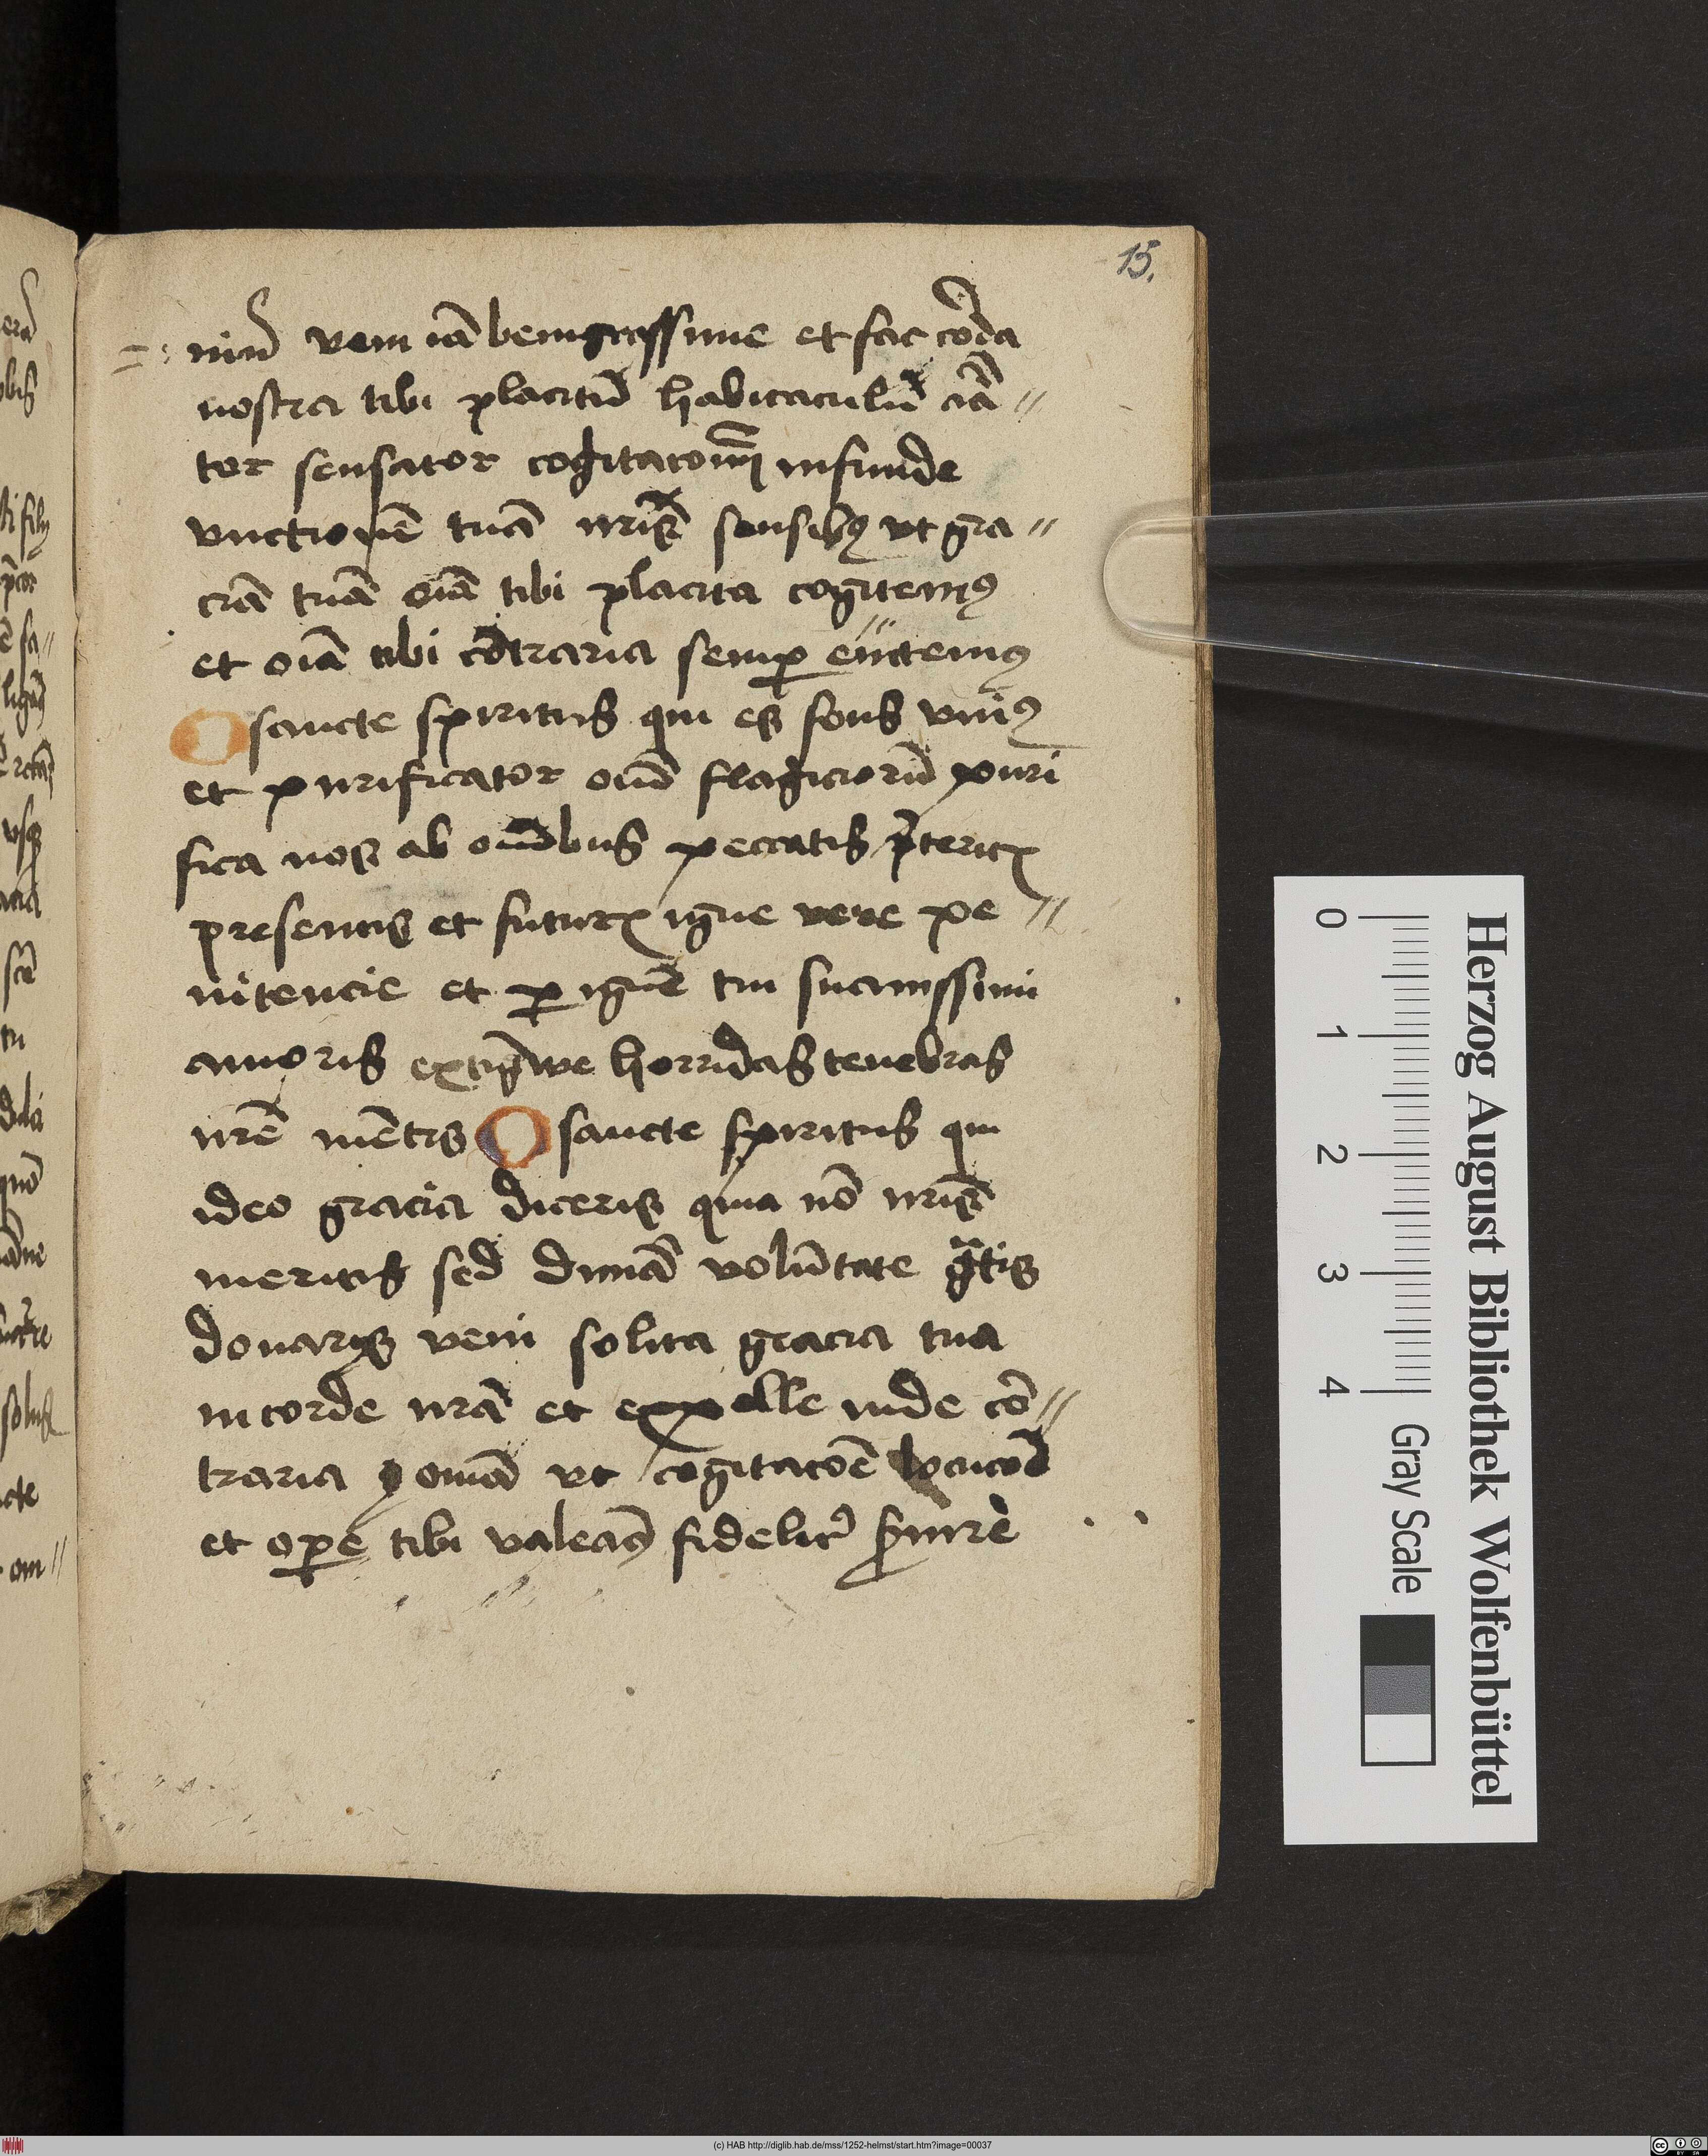 15.
niũ veni iã benignissime et fac corda
nostra tibi placitũ habitaculũ crã〃
tor sensator cogitacionũ infunde
vnctionẽ tuã nr̃is sensibꝰ vt gra〃
ciã tuã oĩa tibi placita cogitemꝰ
et oĩa tibi cõtraria semꝑ euitemꝰ
O sancte spiritus qui es fons viuꝰ
et purificator oĩũ flagiciorũ puri
fica nos ab oĩbus peccatis p̃teritꝭ
presentis et futurꝭ igne vere pe〃
nitencie et ꝑ ignẽ tui suauissimi
amoris extigwe horridas tenebras
nr̃e mẽtis O sancte spiritus qui
ideo gracia diceris quia nõ nr̃is
meritis sed diuinã volũtate gr̃tis
donaris veni solita gracia tua
in corde nr̃a et expelle inde cõ〃
traria oĩnia vt cogitacõe locucõe
et oꝑe tibi valeamꝰ fidelit̃ s̃uire
Herzog August Bibliothek Wolfenbüttel
0 1 2 3 4 Gray Scale
(c) HAB http://diglib.hab.de/mss/1252-helmst/start.htm?image=00037